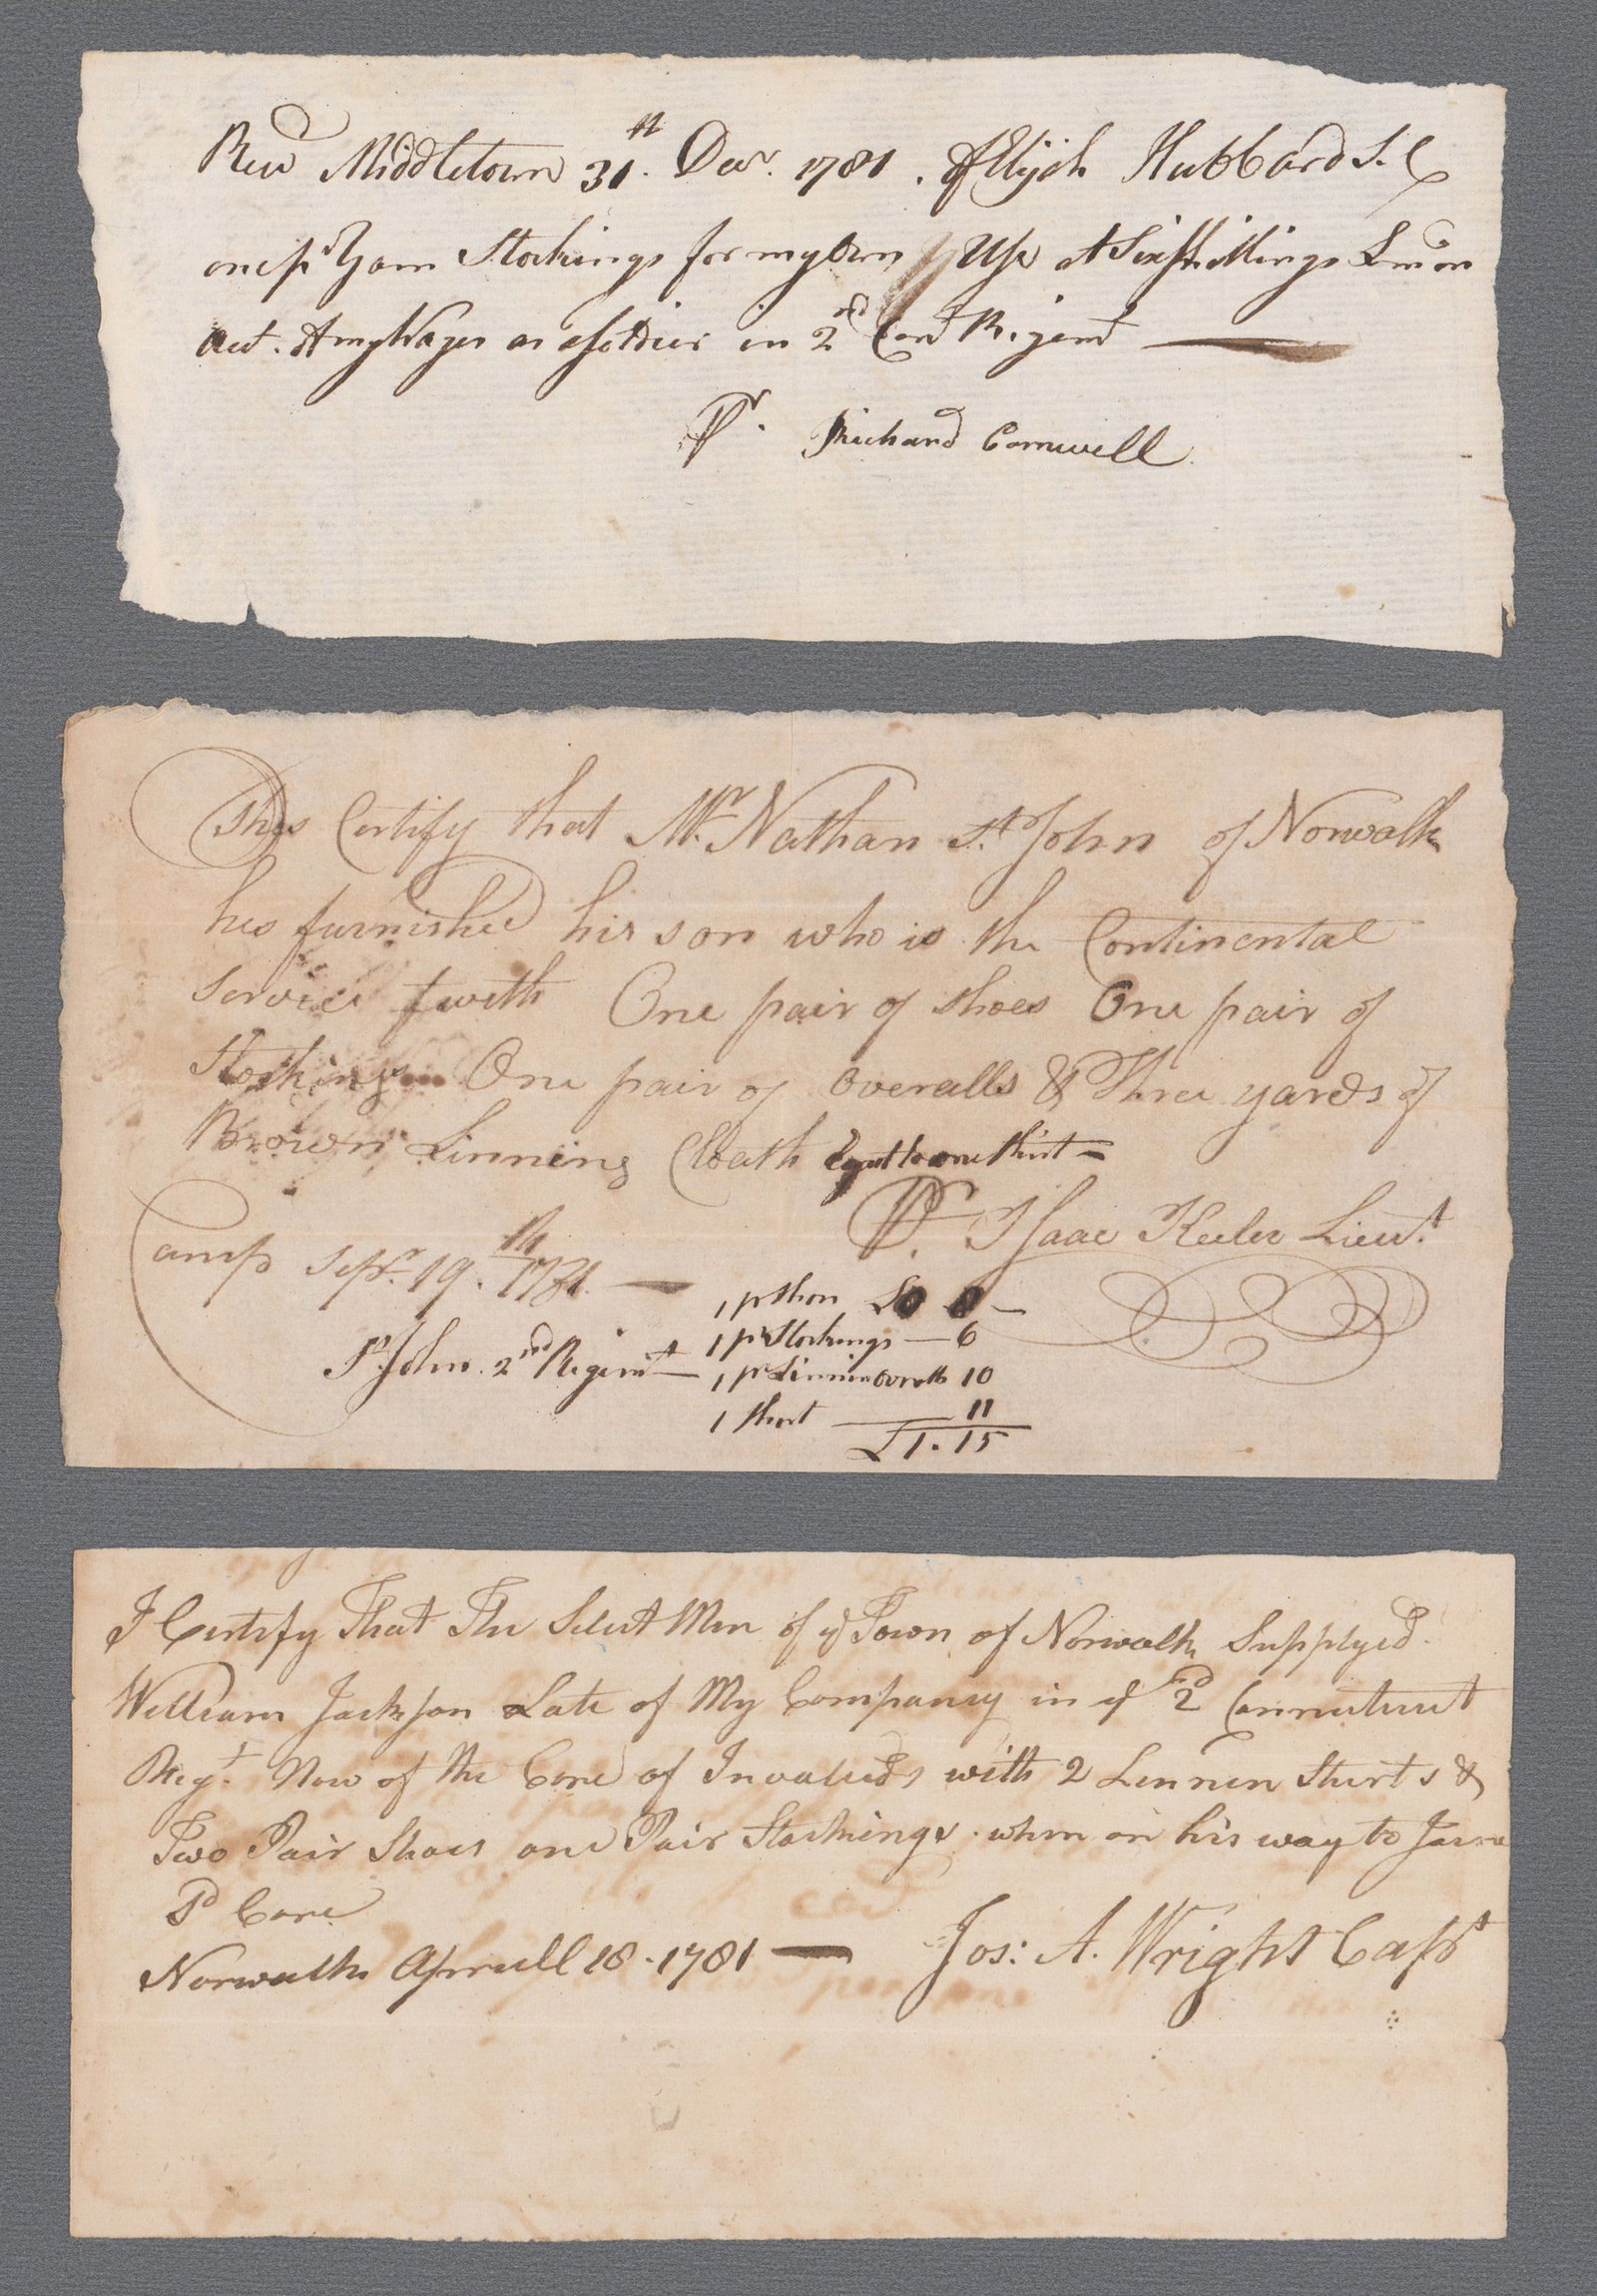 Recd Middletown 31st. Decr. 1781. of Elijah Hubbard S. C
one pr Yarn Stockings for my own Use at Six Shillings L. m on
Acct. of my Wages as a Soldier in 2nd Con Regimt
Pr. Richard Cornwell
This Certify that Mr. Nathan St. John of Norwalk
hes furnished his son who is the Continental
Service with One pair of Shoes One pair of
Stockings One pair of overalls & Three yards of
Brown Linning Cloath Equal to one Shirt
Pr. Isaac Keeler Lieut.
Camp Sepr. 19th. 1781.
St John. 2nd Regimt
1 pr Shoes £0 8
1 pr Stockings 6
1 pr Linnin overalls 10
1 Shirt 11
£1. 15
I Certify That The Select Men of ye Town of Norwalk Supplyed
William Jackson Late of My Company in ye 2d Connecticut
Regt. Now of the Core of Invalieds with 2 Linnen Shirts &
Two Pair Shoes one Pair Stockings when on his way to Joine
Sd Core
Norwalk Aprill 18. 1781 Jos: A. Wright Capt